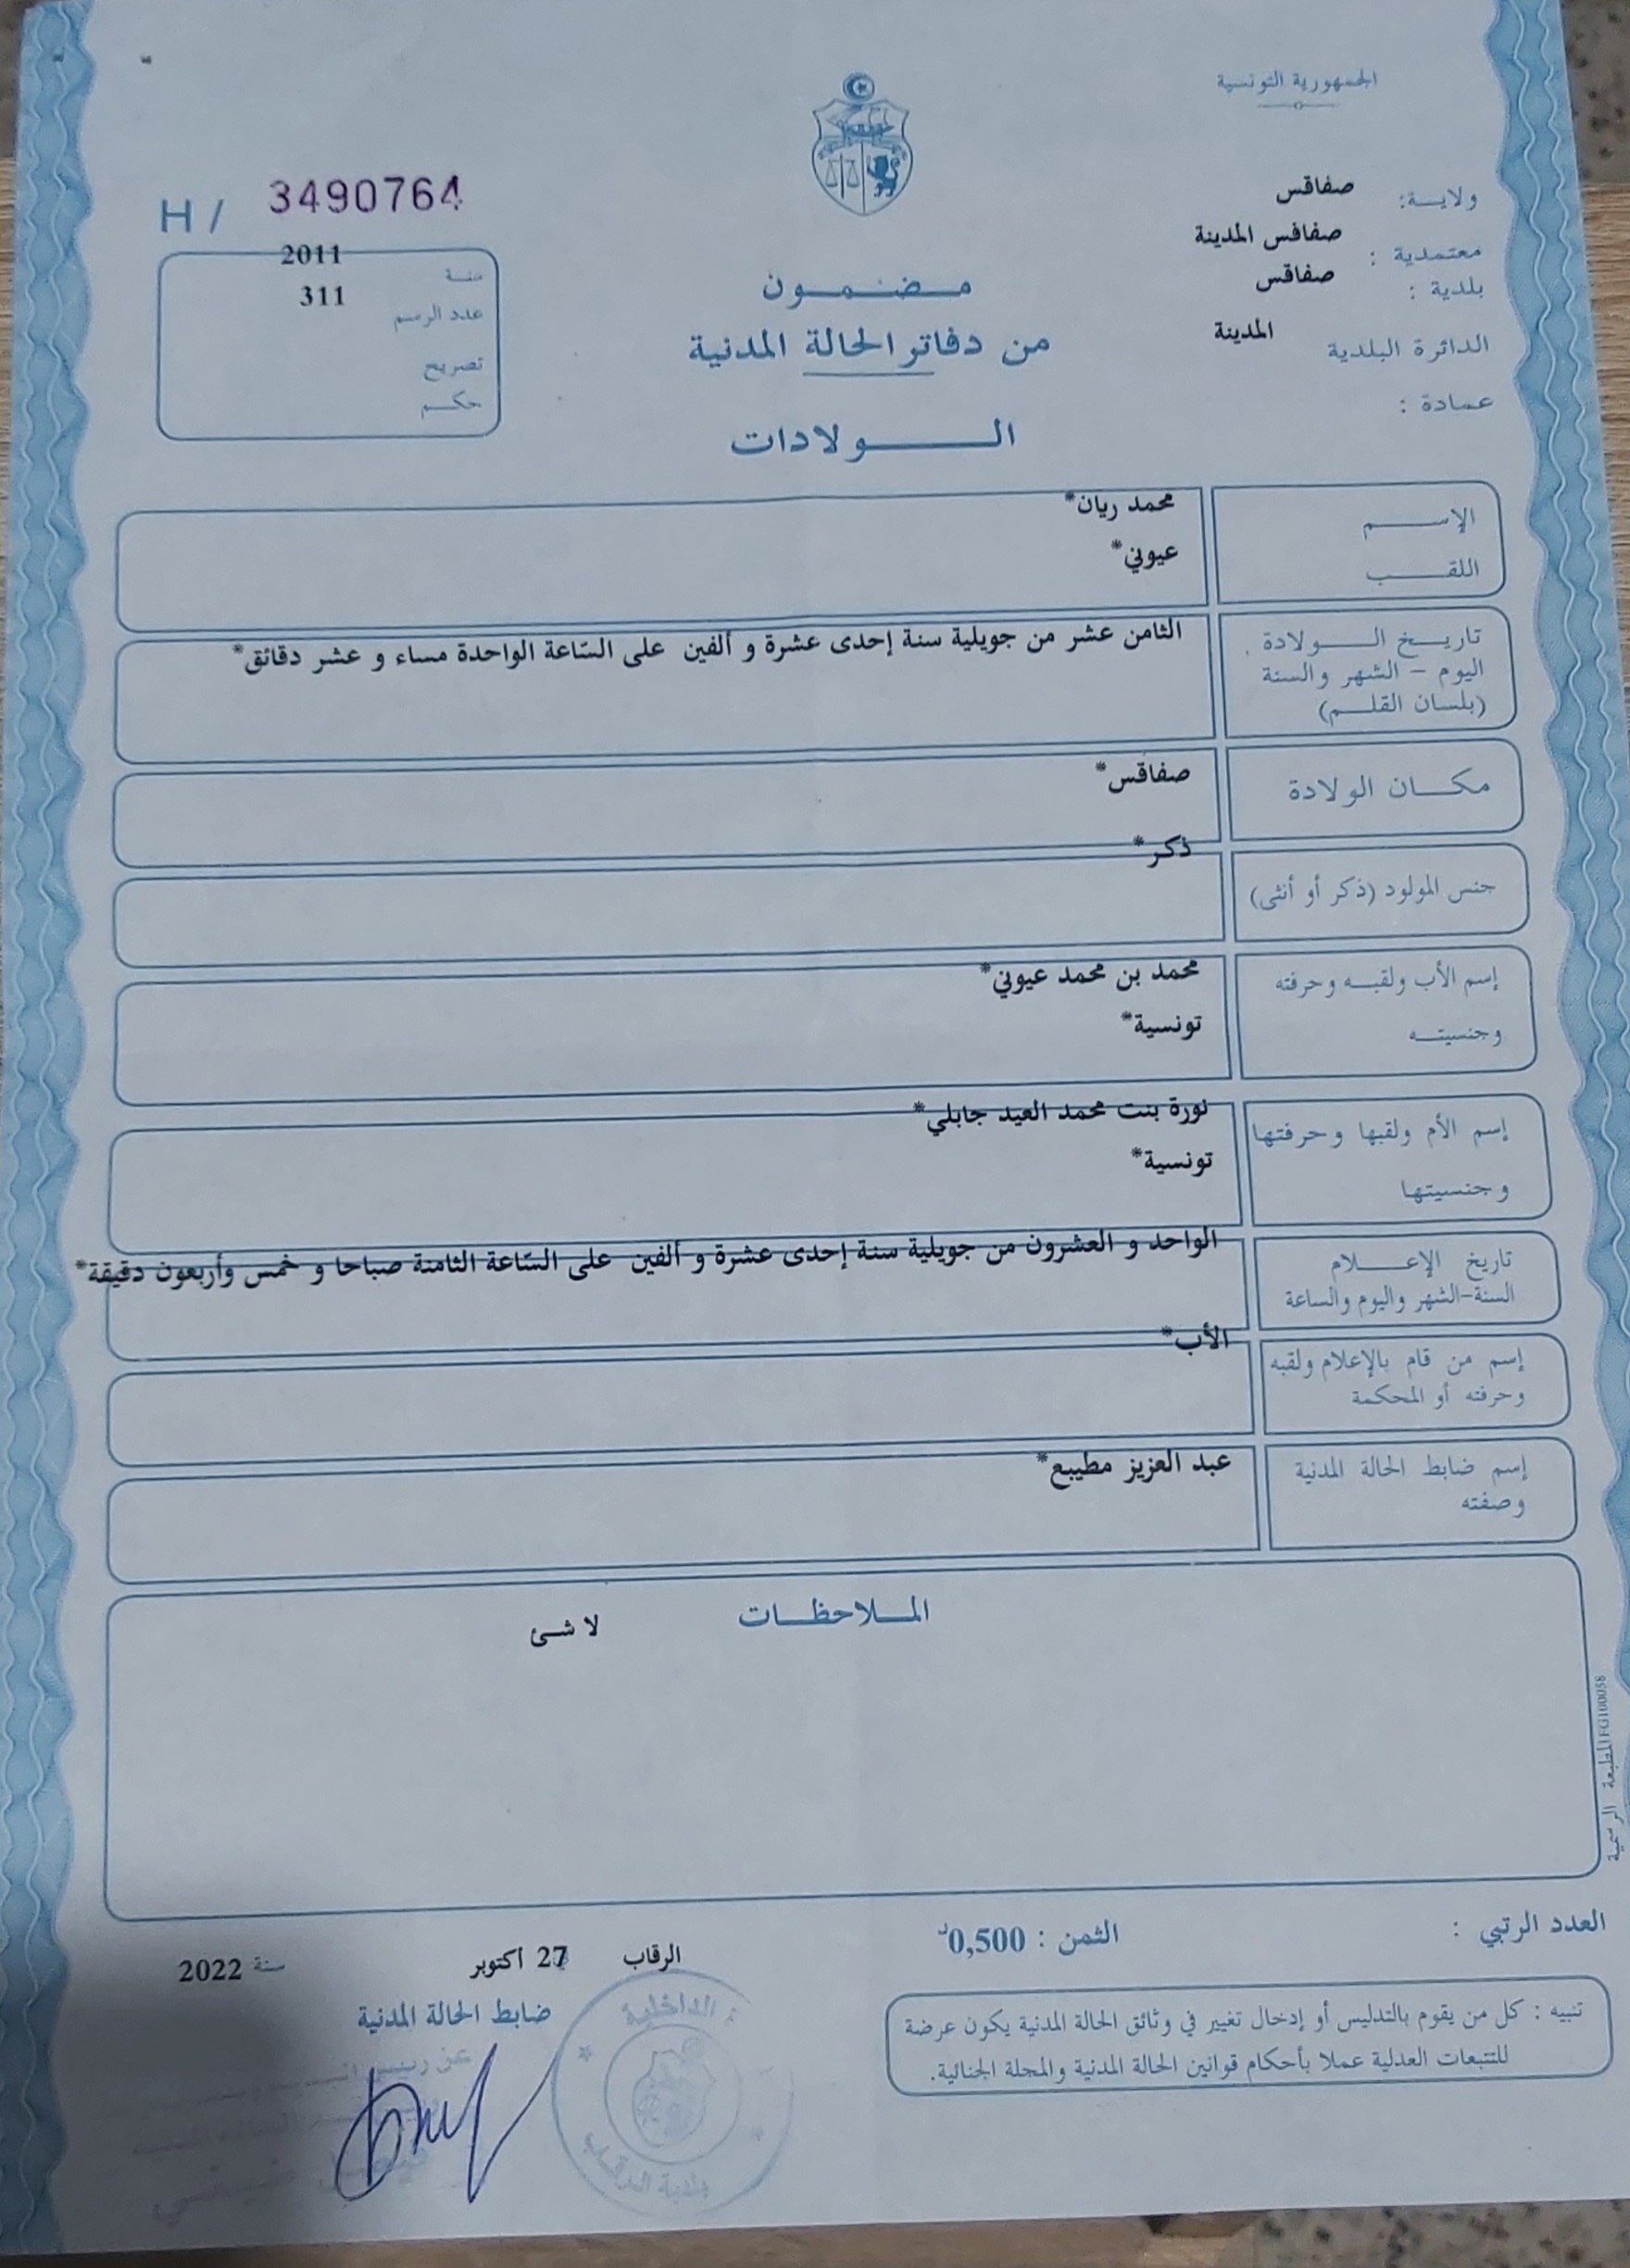 الجمهورية التونسية
ولاية: صفاقس
معتمدية : صفاقس المدينة
بلدية : صفاقس
الدائرة البلدية المدينة
عمادة :
H / 3490764
سنة 2011
عدد الرسم 311
تصريح
حكم
مضمون
من دفاتر الحالة المدنية
الولادات
الإسم محمد ريان*
اللقب عيوني*
تاريخ الولادة
اليوم - الشهر والسنة
(بلسان القلم)
الثامن عشر من جويلية سنة إحدى عشرة و ألفين على السّاعة الواحدة مساء و عشر دقائق*
مكان الولادة صفاقس*
جنس المولود (ذكر أو أنثى) ذكر*
إسم الأب ولقبه وحرفته محمد بن محمد عيوني*
وجنسيته تونسية*
إسم الأم ولقبها وحرفتها نورة بنت محمد العيد جابلي*
وجنسيتها تونسية*
تاريخ الإعلام
السنة-الشهر واليوم والساعة
الواحد و العشرون من جويلية سنة إحدى عشرة و ألفين على السّاعة الثامنة صباحا و خمس وأربعون دقيقة*
إسم من قام بالإعلام ولقبه
وحرفته أو المحكمة
الأب*
إسم ضابط الحالة المدنية
وصفته
عبد العزيز مطيبع*
الملاحظات
لا شئ
المطبعة الرسمية FG100058
العدد الرتبي :
الثمن : 0,500د
الرقاب 27 أكتوبر سنة 2022
ضابط الحالة المدنية
تنبيه : كل من يقوم بالتدليس أو إدخال تغيير في وثائق الحالة المدنية يكون عرضة
للتتبعات العدلية عملا بأحكام قوانين الحالة المدنية والمجلة الجنائية.
الداخلية
بلدية الرقاب